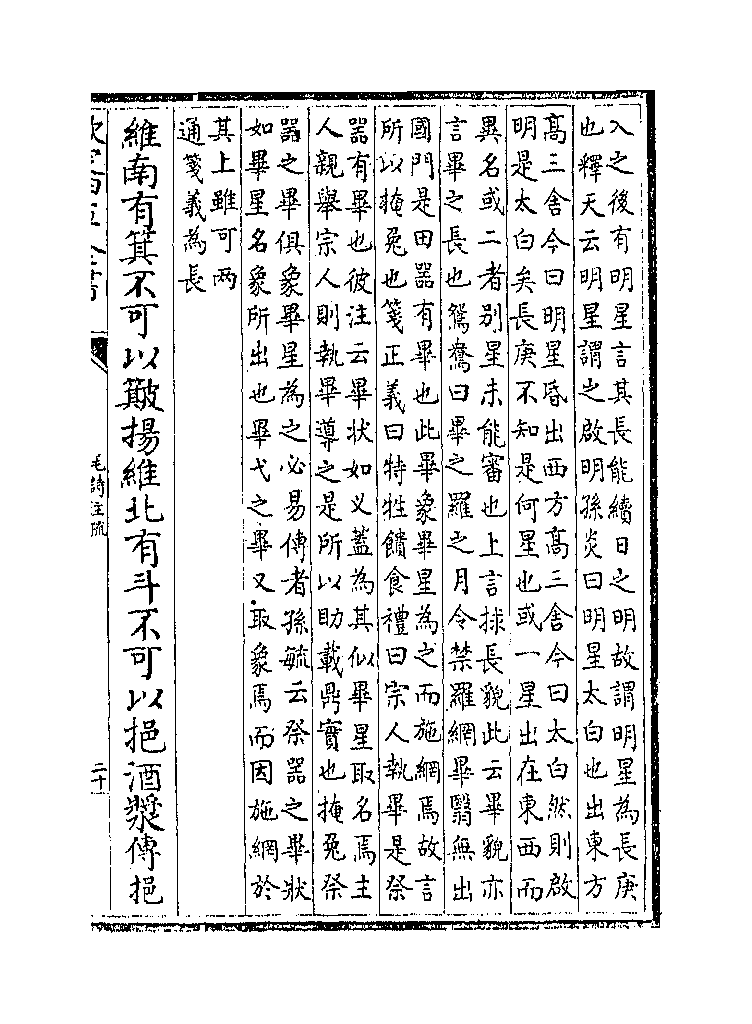 入之後有明星言其長能續日之明故謂明星為長庚
也釋天云明星謂之啟明孫炎曰明星太白也出東方
髙三舍今曰明星昏出西方髙三舍今曰太白然則啟
明是太白矣長庚不知是何星也或一星出在東西而
異名或二者別星未能審也上言捄長貌此云畢貌亦
言畢之長也鴛鴦曰畢之羅之月令禁羅網畢翳無出
國門是田器有畢也此畢象畢星為之而施網焉故言
所以掩兔也箋正義曰特牲饋食禮曰宗人執畢是祭
器有畢也彼注云畢狀如乂蓋為其似畢星取名焉主
人親舉宗人則執畢導之是所以助載鼎實也掩兔祭
器之畢俱象畢星為之必易傳者孫毓云祭器之畢狀
如畢星名象所出也畢弋之畢又取象焉而因施網於
其上雖可兩
通箋義為長
維南有箕不可以簸揚維北有斗不可以挹酒漿傳挹
欽定四庫全書
毛詩注疏
二十